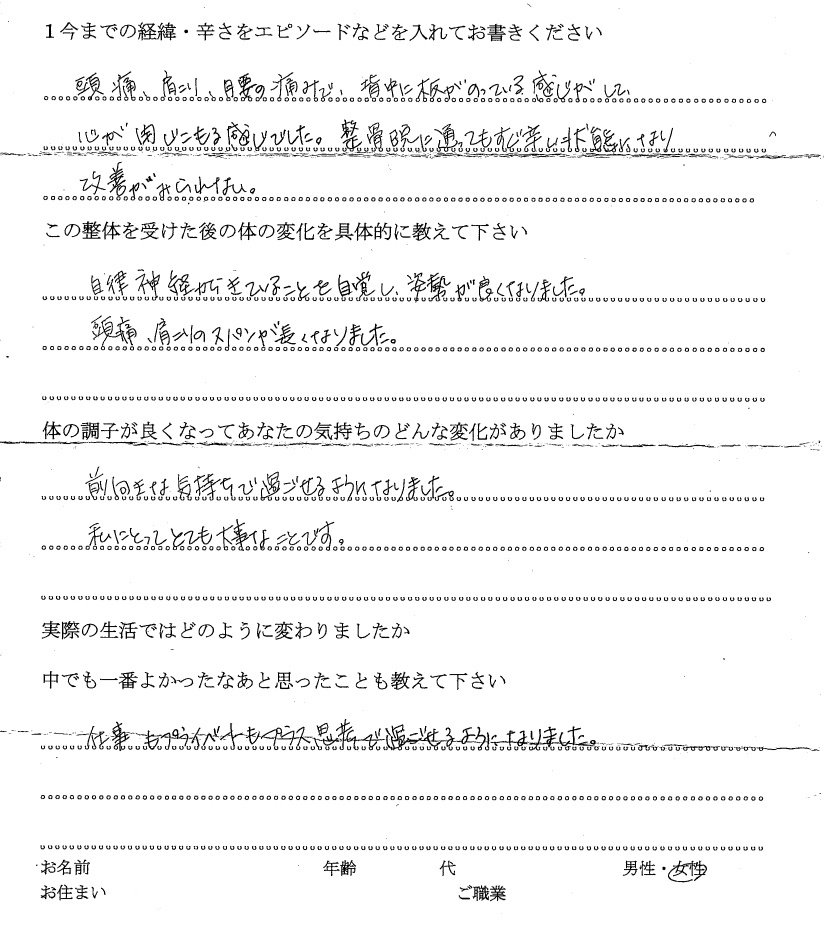 1今までの経緯・辛さをエピソードなどを入れてお書きください
頭痛、肩こり、腰の痛みで、背中に板がのっている感じがして、
心が閉じこもる感じでした。整骨院に通ってもすぐ辛い状態になり
改善がみられない。
この整体を受けた後の体の変化を具体的に教えて下さい
自律神経からきていることを自覚し、姿勢が良くなりました。
頭痛、肩こりのスパンが長くなりました。
体の調子が良くなってあなたの気持ちのどんな変化がありましたか
前向きな気持ちで過ごせるようになりました。
私にとってとても大事なことです。
実際の生活ではどのように変わりましたか
中でも一番よかったなあと思ったことも教えて下さい
仕事もプライベートもプラス思考で過ごせるようになりました。
お名前 年齢 代 男性・女性
お住まい ご職業